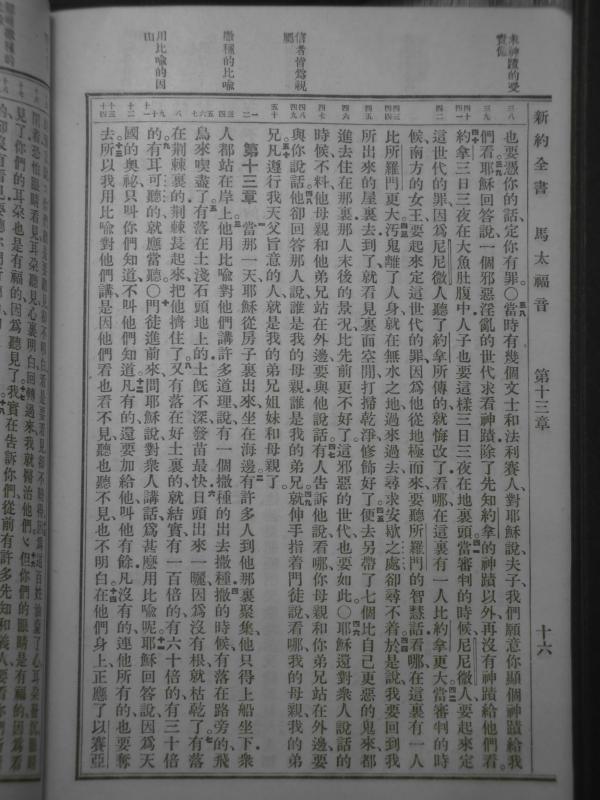 新約全書　馬太福音　第十三章　十六
求神蹟的受責備
信者皆爲親屬
撒種的比喻
用比喻的因由
也要憑你的話定你有罪〇當時有幾個文士和法利賽人對耶穌說夫子我們願意你顯個神蹟給我
們看耶穌回答說一個邪惡淫亂的世代求看神蹟除了先知約拿的神蹟以外再沒有神蹟給他們看
約拿三日三夜在大魚肚腹中人子也要這樣三日三夜在地裏頭當審判的時候尼尼微人要起來定
這世代的罪因爲尼尼微人聽了約拿所傳的就悔改了看哪在這裏有一人比約拿更大當審判的時
候南方的女王要起來定這世代的罪因爲他從地極而來要聽所羅門的智慧話看哪在這裏有一人
比所羅門更大汚鬼離了人身就在無水之地過來過去尋求安歇之處卻尋不着於是說我要回到我
所出來的屋裏去到了就看見裏面空閒打掃乾淨修飾好了便去另帶了七個比自己更惡的鬼來都
進去住在那裏那人末後的景況比先前更不好了這邪惡的世代也要如此〇耶穌還對衆人說話的
時候不料他母親和他弟兄站在外邊要與他說話有人告訴他說看哪你母親和你弟兄站在外邊要
與你說話他卻回答那人說誰是我的母親誰是我的弟兄就伸手指着門徒說看哪我的母親我的弟
兄凡遵行我天父旨意的人就是我的弟兄姐妹和母親了
第十三章　當那一天耶穌從房子裏出來坐在海邊有許多人到他那裏聚集他只得上船坐下衆
人都站在岸上他用比喻對他們講許多道理說有一個撒種的出去撒種撒的時候有落在路旁的飛
鳥來喫盡了有落在土淺石頭地上的土旣不深發苗最快日頭出來一曬因爲沒有根就枯乾了有落
在荊棘裏的荊棘長起來把他擠住了又有落在好土裏的就結實有一百倍的有六十倍的有三十倍
的有耳可聽的就應當聽〇門徒進前來問耶穌說對衆人講話爲甚麼用比喻呢耶穌回答說因爲天
國的奧祕只叫你們知道不叫他們知道凡有的還要加給他叫他有餘凡沒有的連他所有的也要奪
去所以我用比喻對他們講是因他們看也看不見聽也聽不見也不明白在他們身上正應了以賽亞